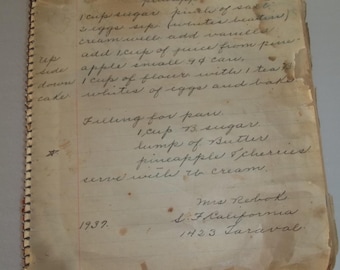 pineapple
1 cup sugar pinch of salt
2 eggs sep (whites beaten)
cream well add vanilla
add 1 cup of juice from pine-
apple small 4¢ can.
1 cup of flour with 1 tea
whites of eggs and bake
up
side
down
cake
Filling for pan
1 cup B sugar
lump of Butter
pineapple & cherries
serve with W cream.
Mrs Rebok
S. F California
1423 Taraval
1937.